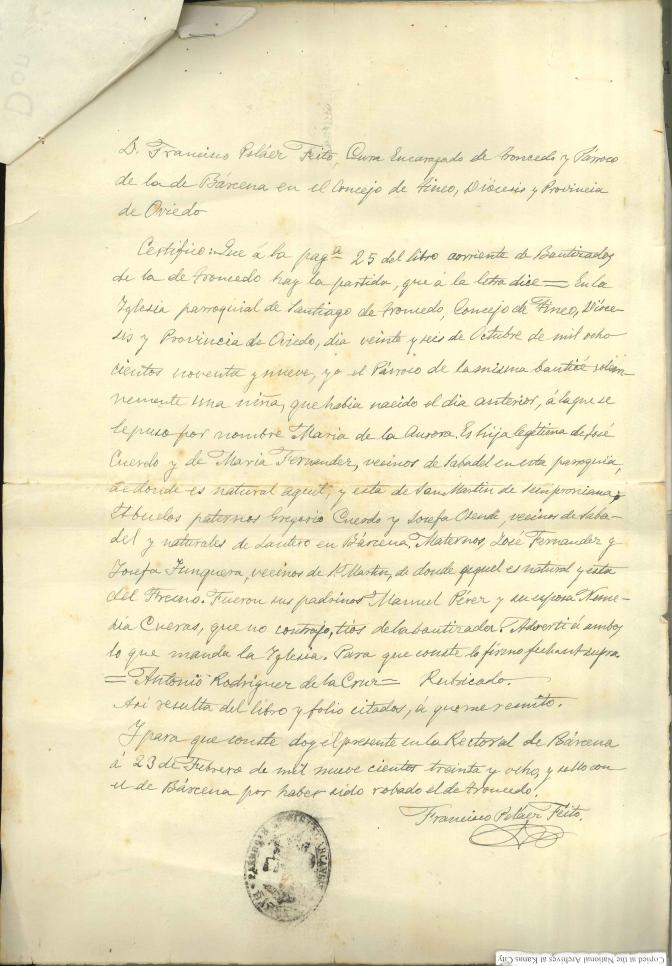 Don
D. Francisco Peláez Feito, Cura Encargado de Troncedo y Párroco
de la de Bárcena en el Concejo de Tineo, Diócesis y Provincia
de Oviedo
Certifico: Que á la pagª 25 del libro corriente de Bautizados
de la de Troncedo hay la partida, que á la letra dice = En la
Yglesia parroquial de Santiago de Troncedo, Concejo de Tineo, Dióce-
sis y Provincia de Oviedo, dia veinte y seis de Octubre de mil ocho
cientos noventa y nueve, yo el Párroco de la misma bauticé solem-
nemente una niña, que habia nacido el dia anterior, á la que se
le puso por nombre Maria de la Aurora. Es hija legítima de José
Cuerdo y de Maria Fernandez, vecinos de Sabadel en esta parroquia,
de donde es natural aquel, y esta de San Martin de Semproniana,
Abuelos paternos Gregorio Cuerdo y Josefa vecinos de Saba-
del y naturales de en Bárcena, Maternos, José Fernandez y
Josefa Junquera, vecinos de Sⁿ Martin, de donde aquel es natural y esta
del Fresno. Fueron sus padrinos Manuel Pérez y su esposa Neme-
sia Cueras, que no contrajo, tios de la bautizada. Advertí á ambos
lo que manda la Yglesia. Para que conste lo firmo fecha ut supra
= Antonio Rodriguez de la Cruz = Rubricado.
Asi resulta del libro y folio citados, á que me remito.
Y para que conste doy el presente en la Rectoral de Bárcena
á 23 de Febrero de mil nueve cientos treinta y ocho, y sello con
el de Bárcena por haber sido robado el de Troncedo.
Francisco Peláez Feito.
Copied at the National Archives at Kansas City